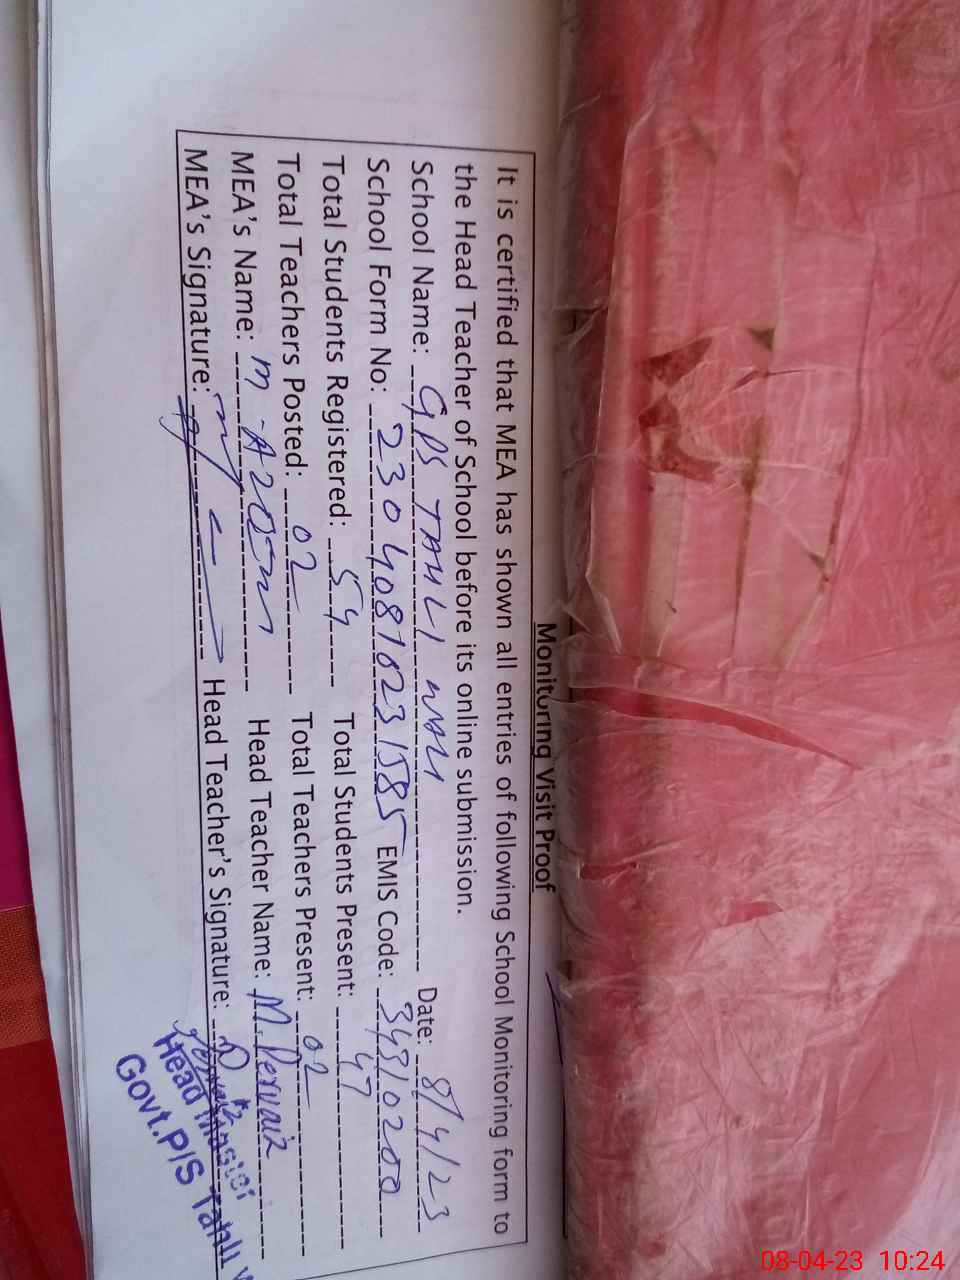 Monitoring Visit Proof
It is certified that MEA has shown all entries of following School Monitoring form to
the Head Teacher of School before its online submission.
School Name: GPS TAHLI WALI Date: 8/4/23
School Form No: 23040810231585 EMIS Code: 34310200
Total Students Registered: 54 Total Students Present: 47
Total Teachers Posted: 02 Total Teachers Present: 02
MEA's Name: M. Azam Head Teacher Name: M. Pervaiz
MEA's Signature: Head Teacher's Signature: Pervaiz
Head Master
Govt. P/S Tahli
08-04-23 10:24